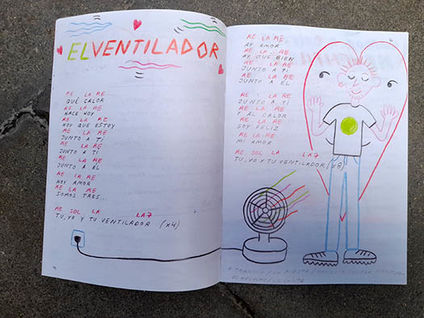 EL VENTILADOR
RE LA RE
QUÉ CALOR
RE LA RE
HACE HOY
RE LA RE
HOY QUE ESTOY
RE LA RE
JUNTO A TI
RE LA RE
JUNTO A TI
RE LA RE
JUNTO A EL
RE LA RE
HOY AMOR
RE LA RE
SOMOS TRES
RE SOL LA LA7
TU, YO Y TU VENTILADOR (x4)
RE LA RE
AY AMOR
RE LA RE
AY QUE BIEN
RE LA RE
JUNTO A TI
RE LA RE
JUNTO A EL
RE LA RE
JUNTO A TI
RE LA RE
Y AL CALOR
RE LA RE
SOY FELIZ
RE LA RE
MI AMOR
RE SOL LA LA7
TU, YO Y TU VENTILADOR (x8)